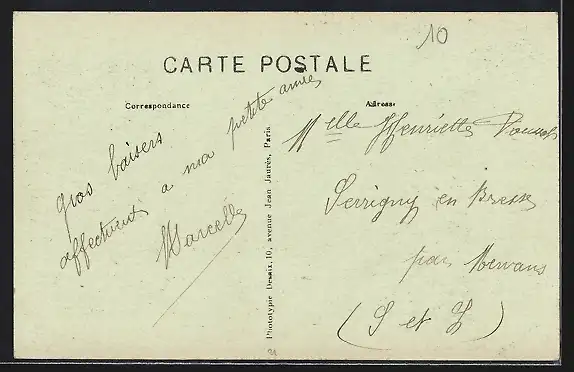 10
CARTE POSTALE
Correspondance
Adresse
gros baisers
affectueux a ma petite amie
Marcelle
Phototypie Desaix, 10, avenue Jean Jaurès, Paris
Melle Henriette
Serrigny en Bresse
par Mervans
(S et L)